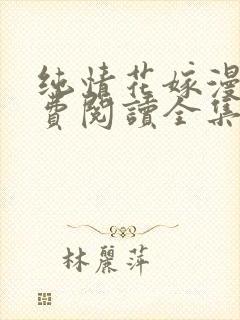 纯情花嫁漫
費閱讀全集
林麗萍